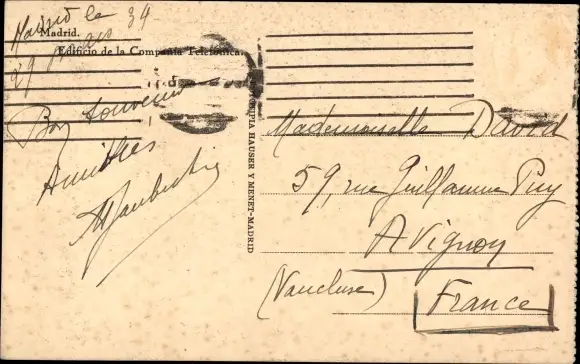 Madrid le
29 Mars 34
Madrid.
Edificio de la Compañía Telefónica.
Bon souvenir
Amitiés
FOTOTIPIA HAUSER Y MENET-MADRID
Mademoiselle David
59, rue Guillaume Puy
Avignon
(Vaucluse)
France